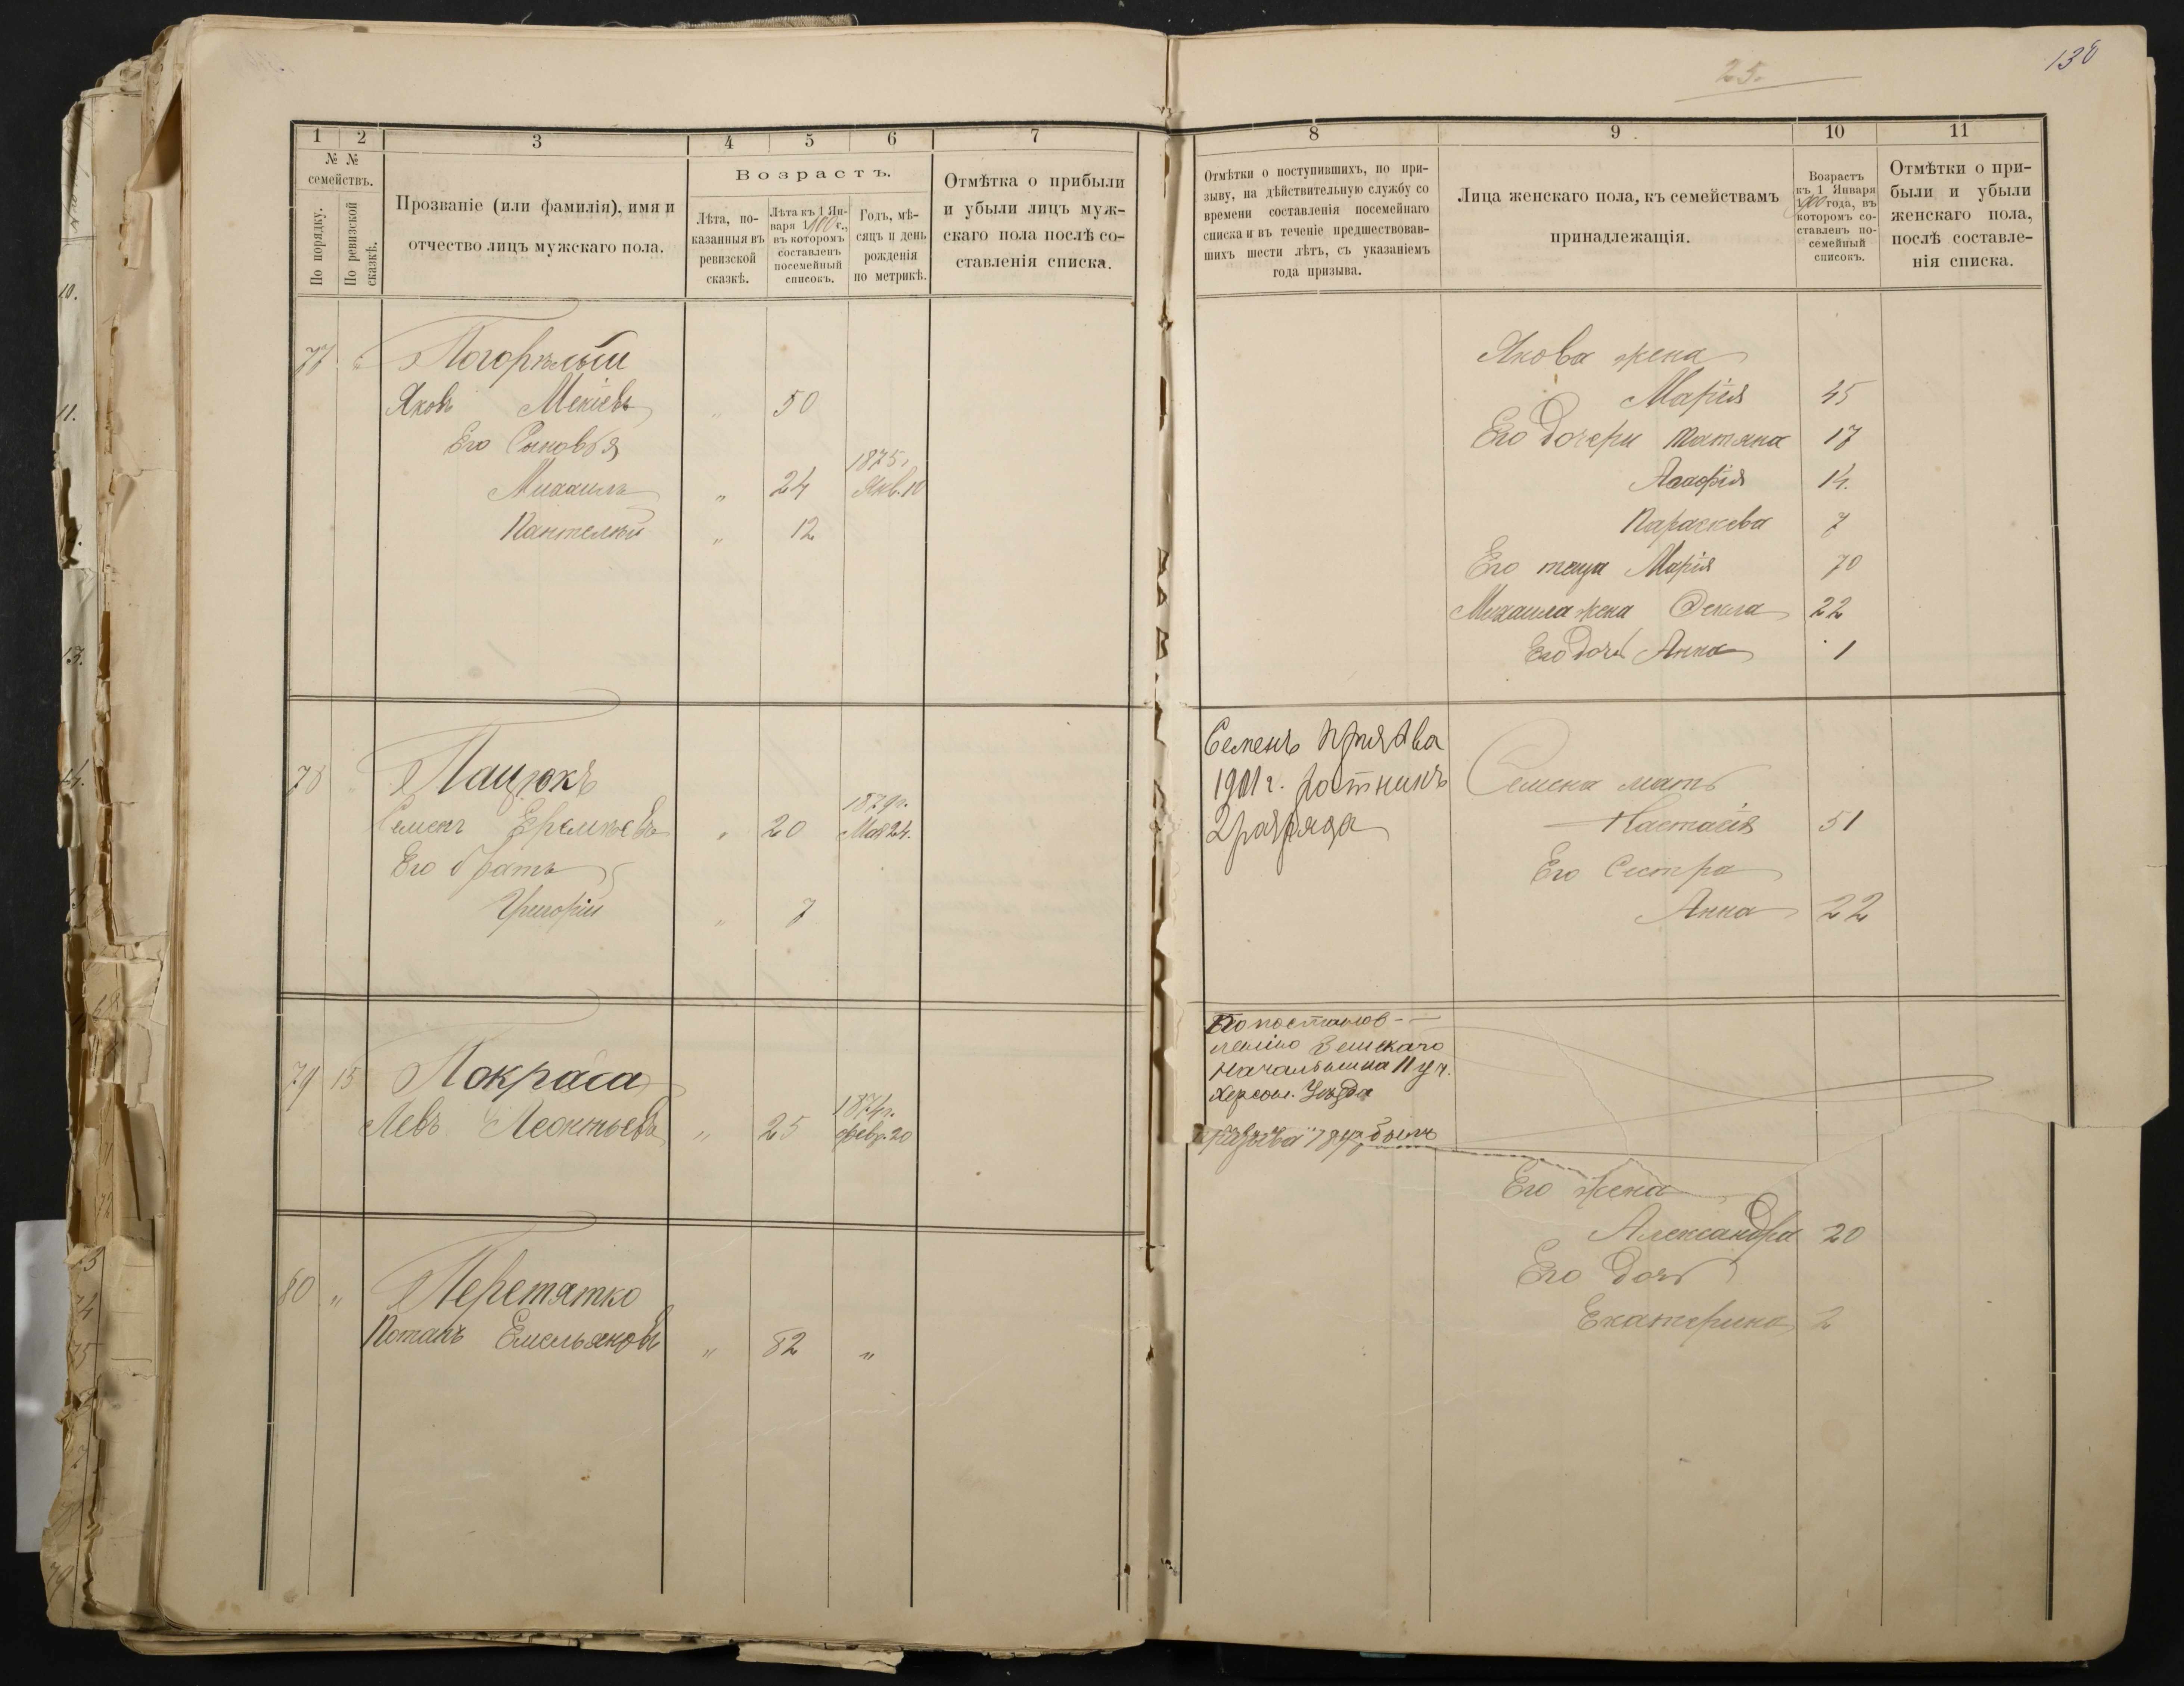 25.
138
1
2
3
4
5
6
7
№ №
семействъ.
По порядку.
По ревизской сказкѣ.
Прозваніе (или фамилія), имя и
отчество лицъ мужскаго пола.
Возрастъ.
Лѣта, по-
казанныя въ
ревизской
сказкѣ.
Лѣта къ 1 Ян-
варя 1900 г.,
въ которомъ
составленъ
посемейный
списокъ.
Годъ, мѣ-
сяцъ и день
рожденія
по метрикѣ.
Отмѣтка о прибыли
и убыли лицъ муж-
скаго пола послѣ со-
ставленія списка.
8
9
10
11
Отмѣтки о поступившихъ, по при-
зыву, на дѣйствительную службу со
времени составленія посемейнаго
списка и въ теченіе предшествовав-
шихъ шести лѣтъ, съ указаніемъ
года призыва.
Лица женскаго пола, къ семействамъ
принадлежащія.
Возрастъ
къ 1 Января
1900 года, въ
которомъ со-
ставленъ по-
семейный
списокъ.
Отмѣтки о при-
были и убыли
женскаго пола,
послѣ составле-
нія списка.
77 Погорѣлый
Яковъ Мекіевъ " 50
Его Сыновья
Михаилъ " 24 1875 Янв. 10
Пантелей " 12
Якова жена
Марія 45
Его дочери Татяна 17
14.
Параскева 7
Его теща Марія 70
Михаила жена Фекла 22
Его дочь Анна 1
78 Пацюкъ
Семенъ Еремѣевъ " 20 1879г. Мая 24.
Его братъ
Григорій " 7
Семенъ
1901 г. ратникъ
2 разряда
Семена мать
Настасія 51
Его Сестра
Анна 22
79 15 Покраса
Левъ Леонтьевъ " 25 1874г. февр. 20
По постанов-
ленію Земскаго
Начальника 11 уч.
Херсон. Уѣзда
Его жена
Александра 20
Его дочь
Екатерина 2
80 " Перетятко
Потапъ Емельяновъ " 82 "